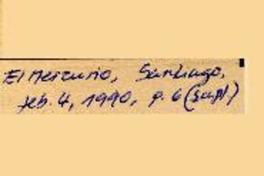 El Mercurio, Santiago,
feb. 4, 1990, p. 6 (Supl)